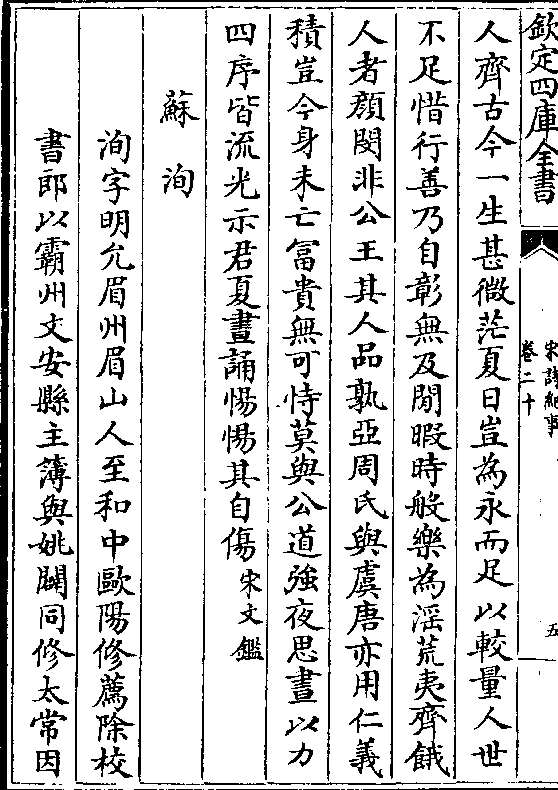 欽定四庫全書
宋詩紀事
卷二十
五
人齊古今一生甚微茫夏日豈為永而足以較量人世
不足惜行善乃自彰無及閒暇時般樂為滛荒夷齊餓
人者顔閔非公王其人品孰亞周氏與虞唐亦用仁義
積豈今身未亡冨貴無可恃莫與公道強夜思晝以力
四序皆流光示君夏晝誦惕惕其自傷宋文鑑
蘇洵
洵字明允眉州眉山人至和中歐陽修薦除校
書郎以霸州文安縣主簿與姚闢同修太常因